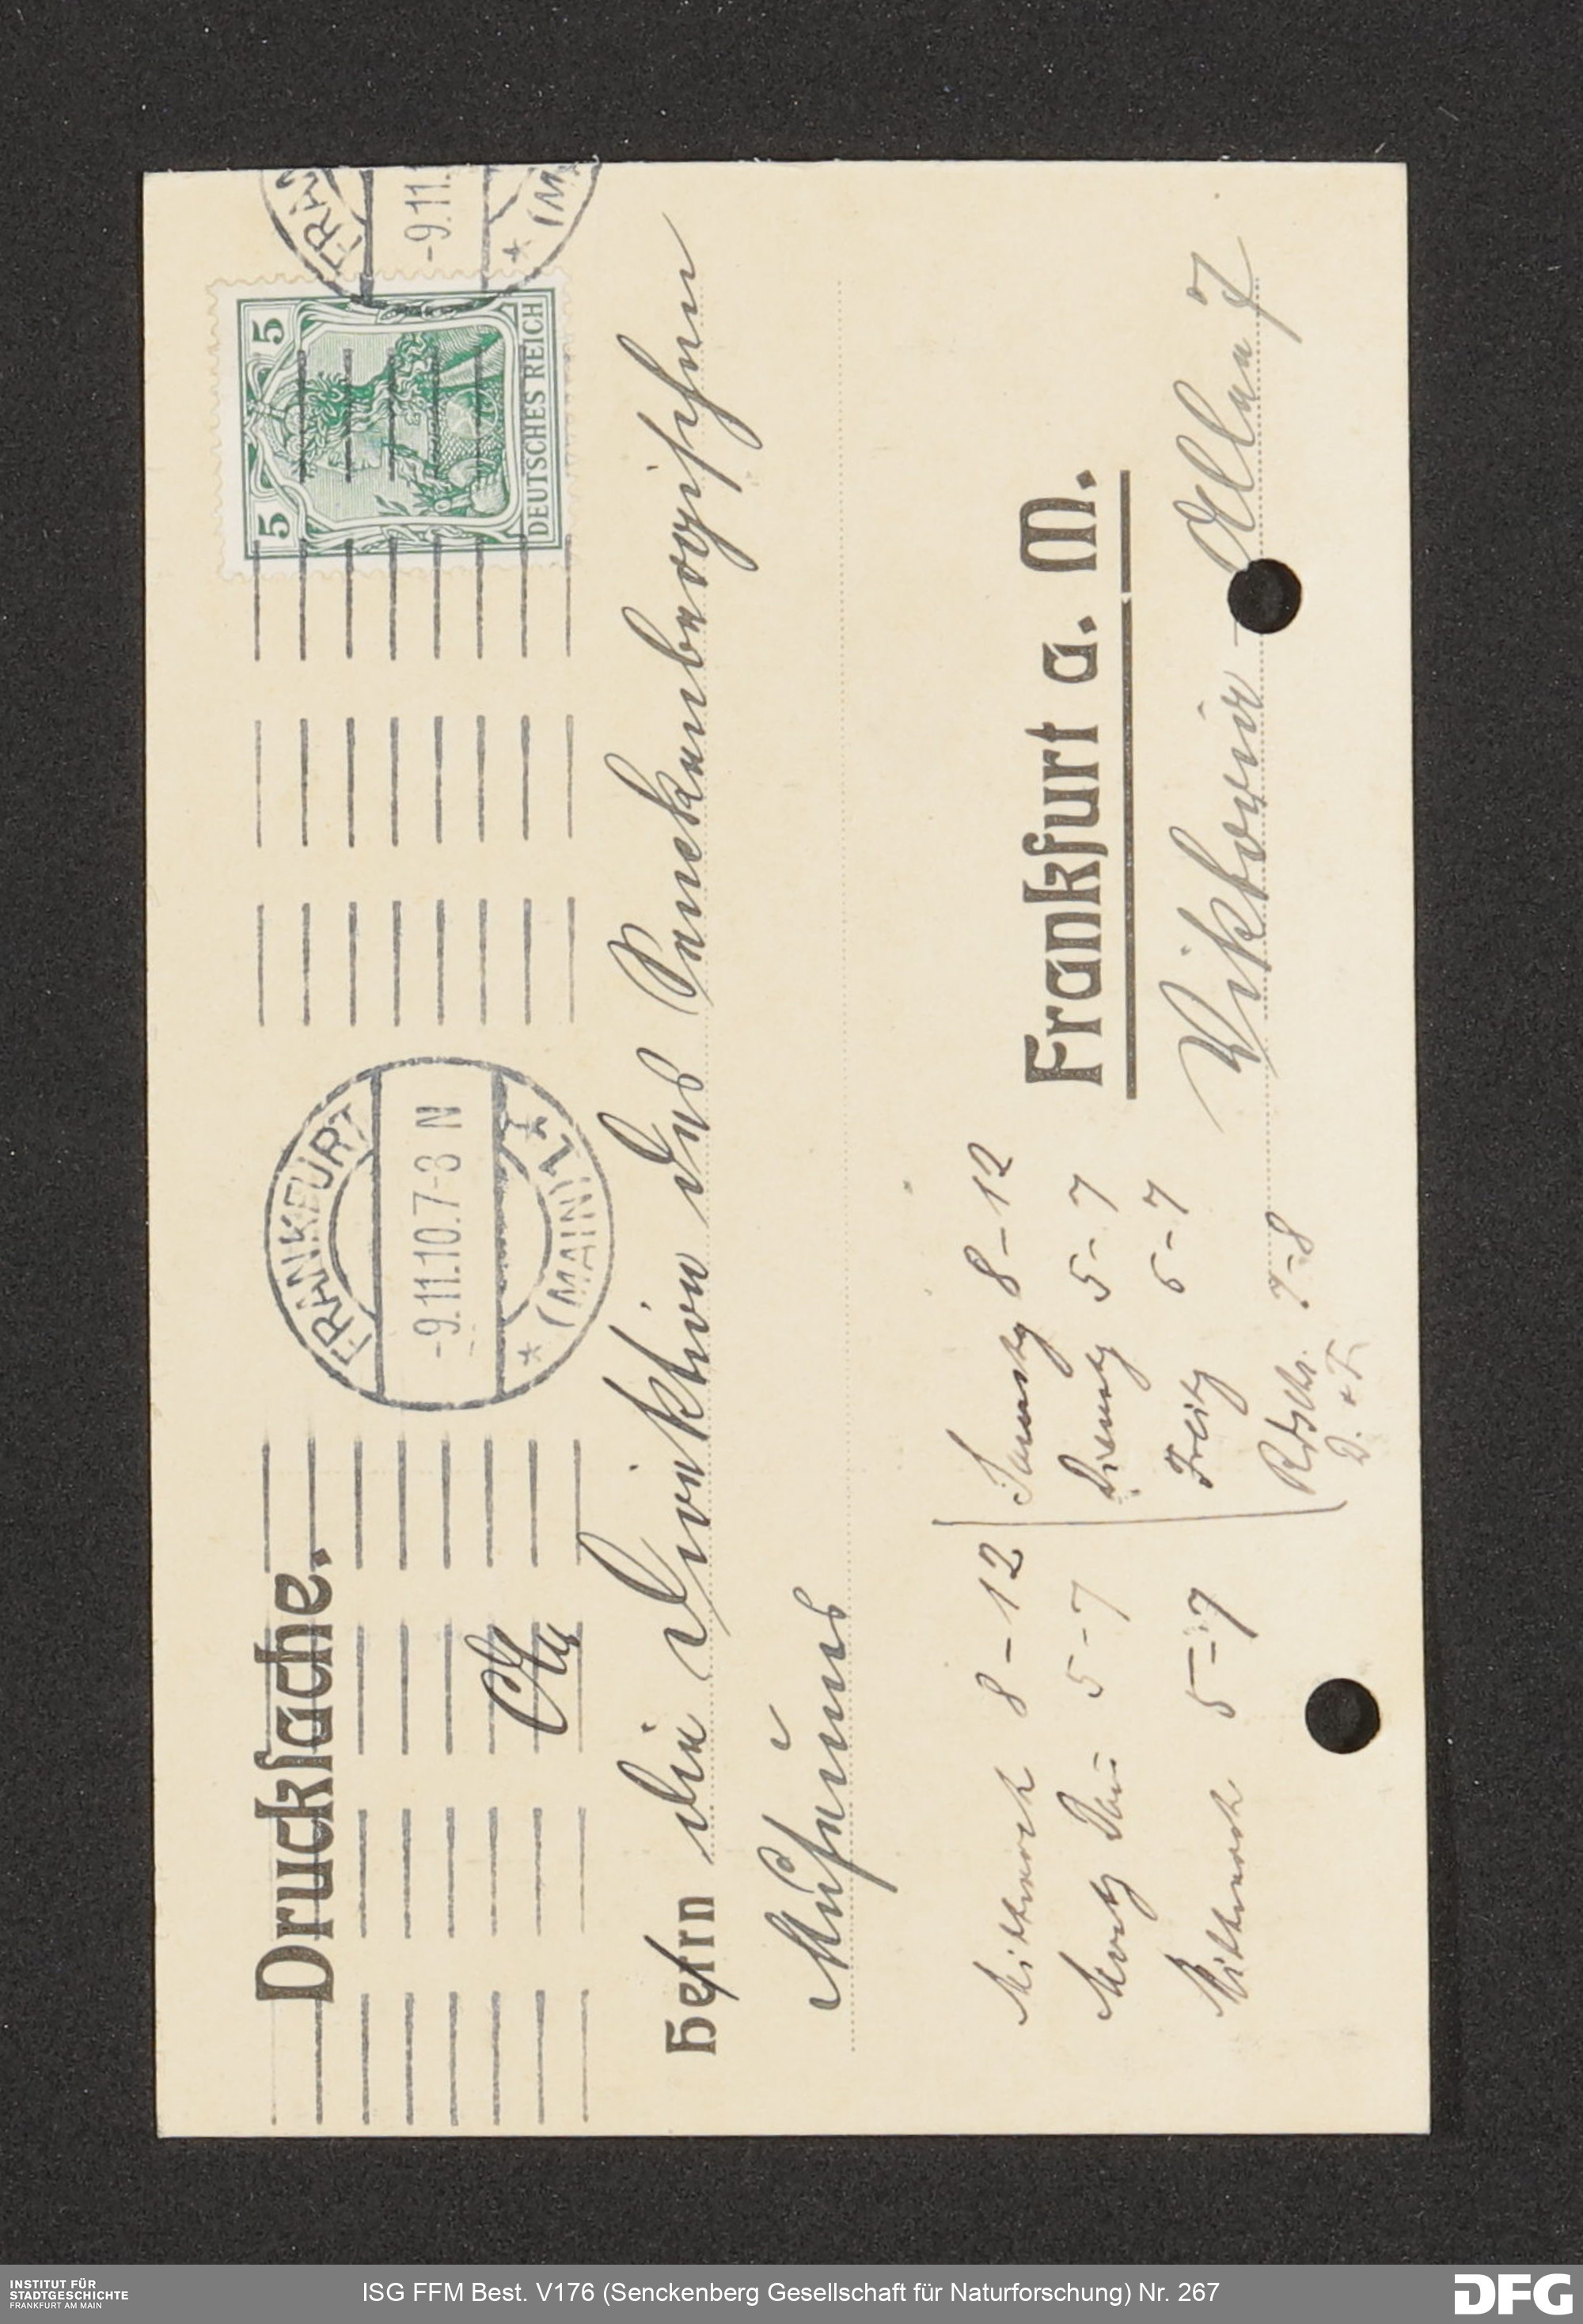 Drucksache.
FRANKFURT
-9.11.10.7-8 N
* (MAIN) 1. *
FRAN
-9.11.
* (M
5 5
DEUTSCHES REICH
Herrn die Direktion des Senckenbergischen
Museums
Frankfurt a. M.
Viktoria-Allee 7
Mittwoch 8-12
5-7
Mittwoch 5-7
Samstg 8-12
Dienstg 5-7
Freitg 6-7
7-8
D. + F.
INSTITUT FÜR
STADTGESCHICHTE
FRANKFURT AM MAIN
ISG FFM Best. V176 (Senckenberg Gesellschaft für Naturforschung) Nr. 267
DFG